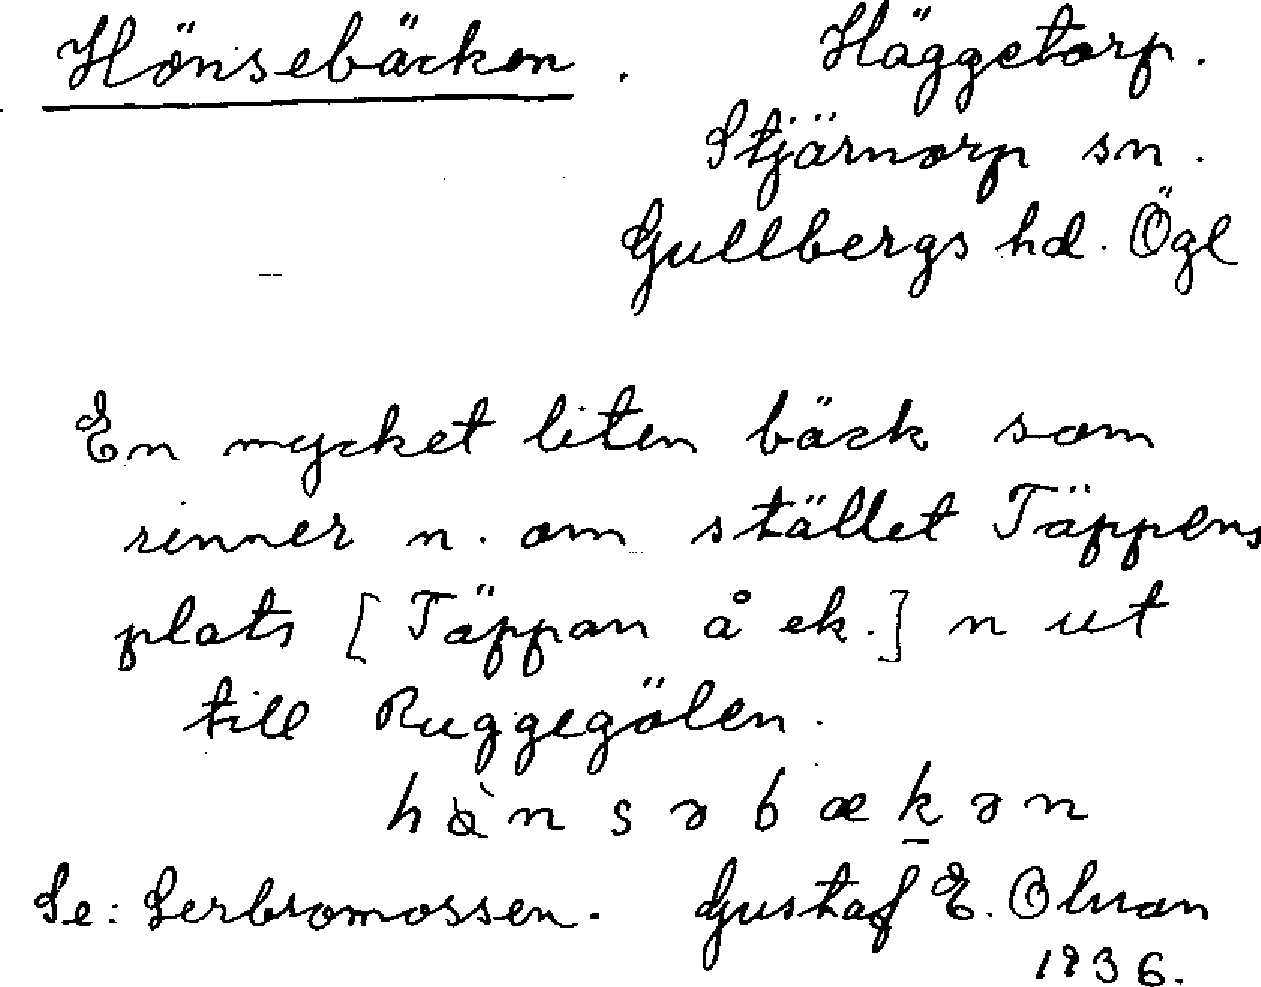 Hönsebäcken. Häggetorp.
Stjärnorp sn.
Gullbergs hd. Ögl
En mycket liten bäck som
rinner n. om stället Täppens
plats [Täppan å ek.] n ut
till Ruggegölen.
hὰnsəbækən
Se: Serbromossen. Gustaf E. Olsson
1936.